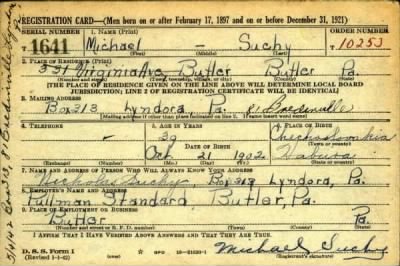 REGISTRATION CARD—(Men born on or after February 17, 1897 and on or before December 31, 1921)
SERIAL NUMBER
1. NAME (Print)
ORDER NUMBER
T 1641
Michael - Suchy
T 10253
(First) (Middle) (Last)
2. PLACE OF RESIDENCE (Print)
331 Virginia Ave. Butler Butler Pa.
(Number and street) (Town, township, village, or city) (County) (State)
[THE PLACE OF RESIDENCE GIVEN ON THE LINE ABOVE WILL DETERMINE LOCAL BOARD
JURISDICTION; LINE 2 OF REGISTRATION CERTIFICATE WILL BE IDENTICAL]
3. MAILING ADDRESS
Box 313 Lyndora, Pa.
[Mailing address if other than place indicated on line 2. If same insert word same]
4. TELEPHONE
5. AGE IN YEARS
6. PLACE OF BIRTH
-
Czechoslovakia
DATE OF BIRTH
Oct 21 1902
(Exchange) (Number) (Mo.) (Day) (Yr.) (State or country)
7. NAME AND ADDRESS OF PERSON WHO WILL ALWAYS KNOW YOUR ADDRESS
Nicholas Suchy Box 313 Lyndora, Pa.
8. EMPLOYER'S NAME AND ADDRESS
Pullman Standard Butler, Pa.
9. PLACE OF EMPLOYMENT OR BUSINESS
Butler Pa.
(Number and street or R. F. D. number) (Town) (County) (State)
I AFFIRM THAT I HAVE VERIFIED ABOVE ANSWERS AND THAT THEY ARE TRUE.
D. S. S. Form 1
(Revised 1-1-42) (over)
GPO 16-21630-1
Michael Suchy
(Registrant's signature)